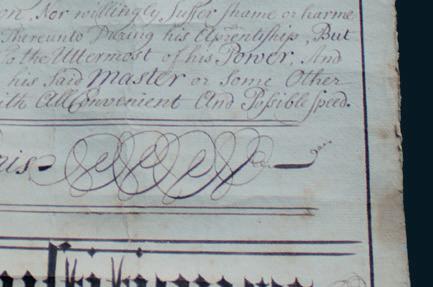 on, Nor willingly Suffer shame or harme
Thereunto During his Aprentiship, But
to the Uttermost of his Power, And
his said Master or Some Other
ith All Convenient And Possible speed.